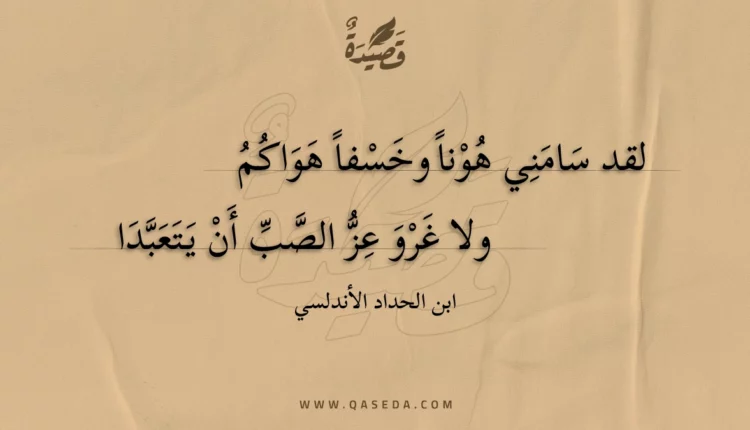 قَصِيدَةٌ
لقد سَامَنِي هُوْناً وخَسْفاً هَوَاكُمُ
ولا غَرْوَ عِزُّ الصَّبِّ أَنْ يَتَعَبَّدَا
ابن الحداد الأندلسي
WWW.QASEDA.COM